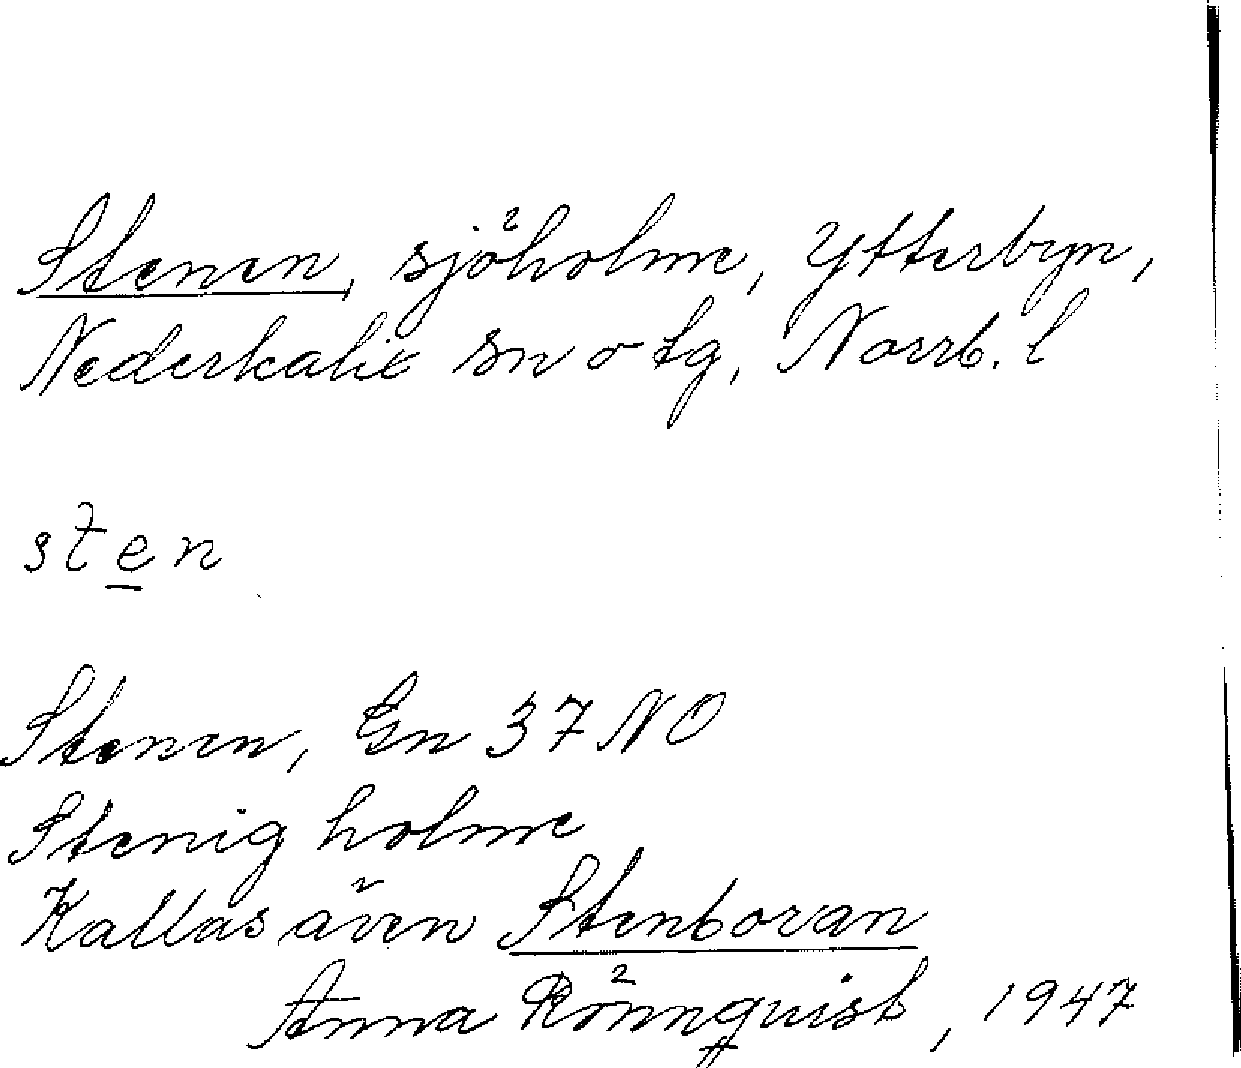 Stenen, sjöholme, Ytterbyn,
Nederkalix sn o tg, Norrb. l
sten
Stenen, En 37 NO
Stenig holme
Kallas även Stenboran
Anna Rönnquist, 1947